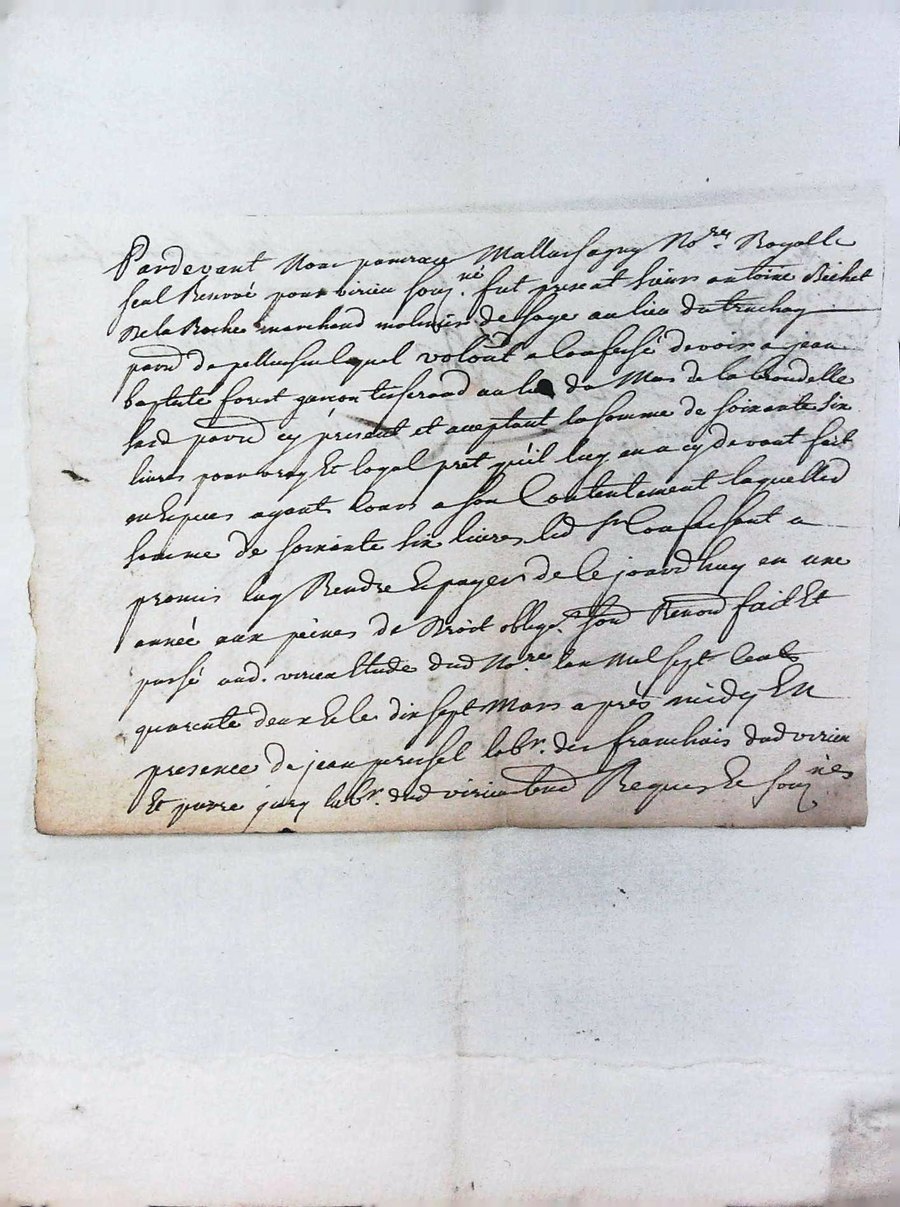 Pardevant Nous pancrace Mallassagny No.re Royalle
seul Renvoé pour virieu souz.né fut present sieurs antoine Bichet
De la Roche marchand molinier de soye au lieu du truchay
parr.d de pellussin lequel volont.t a Confessé devoir a jean
baptiste forest garcon tisserand au lieu du Mas de la
lad parr.d cy présent et aceptant la somme de soixante six
livres pour vray Et loyal pret qu'il luy en a cy devant fait
en Espèces ayants Cours a son Contentement laquelled
somme de soixante six livres led s.r Confessant a
promis luy Rendre Et payer de ce jourd'huy en une
année aux peines de Droit oblige.on soud Renond fait Et
passé aud. virieu Etude dud No.re Lan Mil sept Cents
quarente deux Et le dix sept Mars après midy En
presence de jean labr. des franchais dud virieu
Et pierre jury labr. dud virieu Requis Et souz.nés